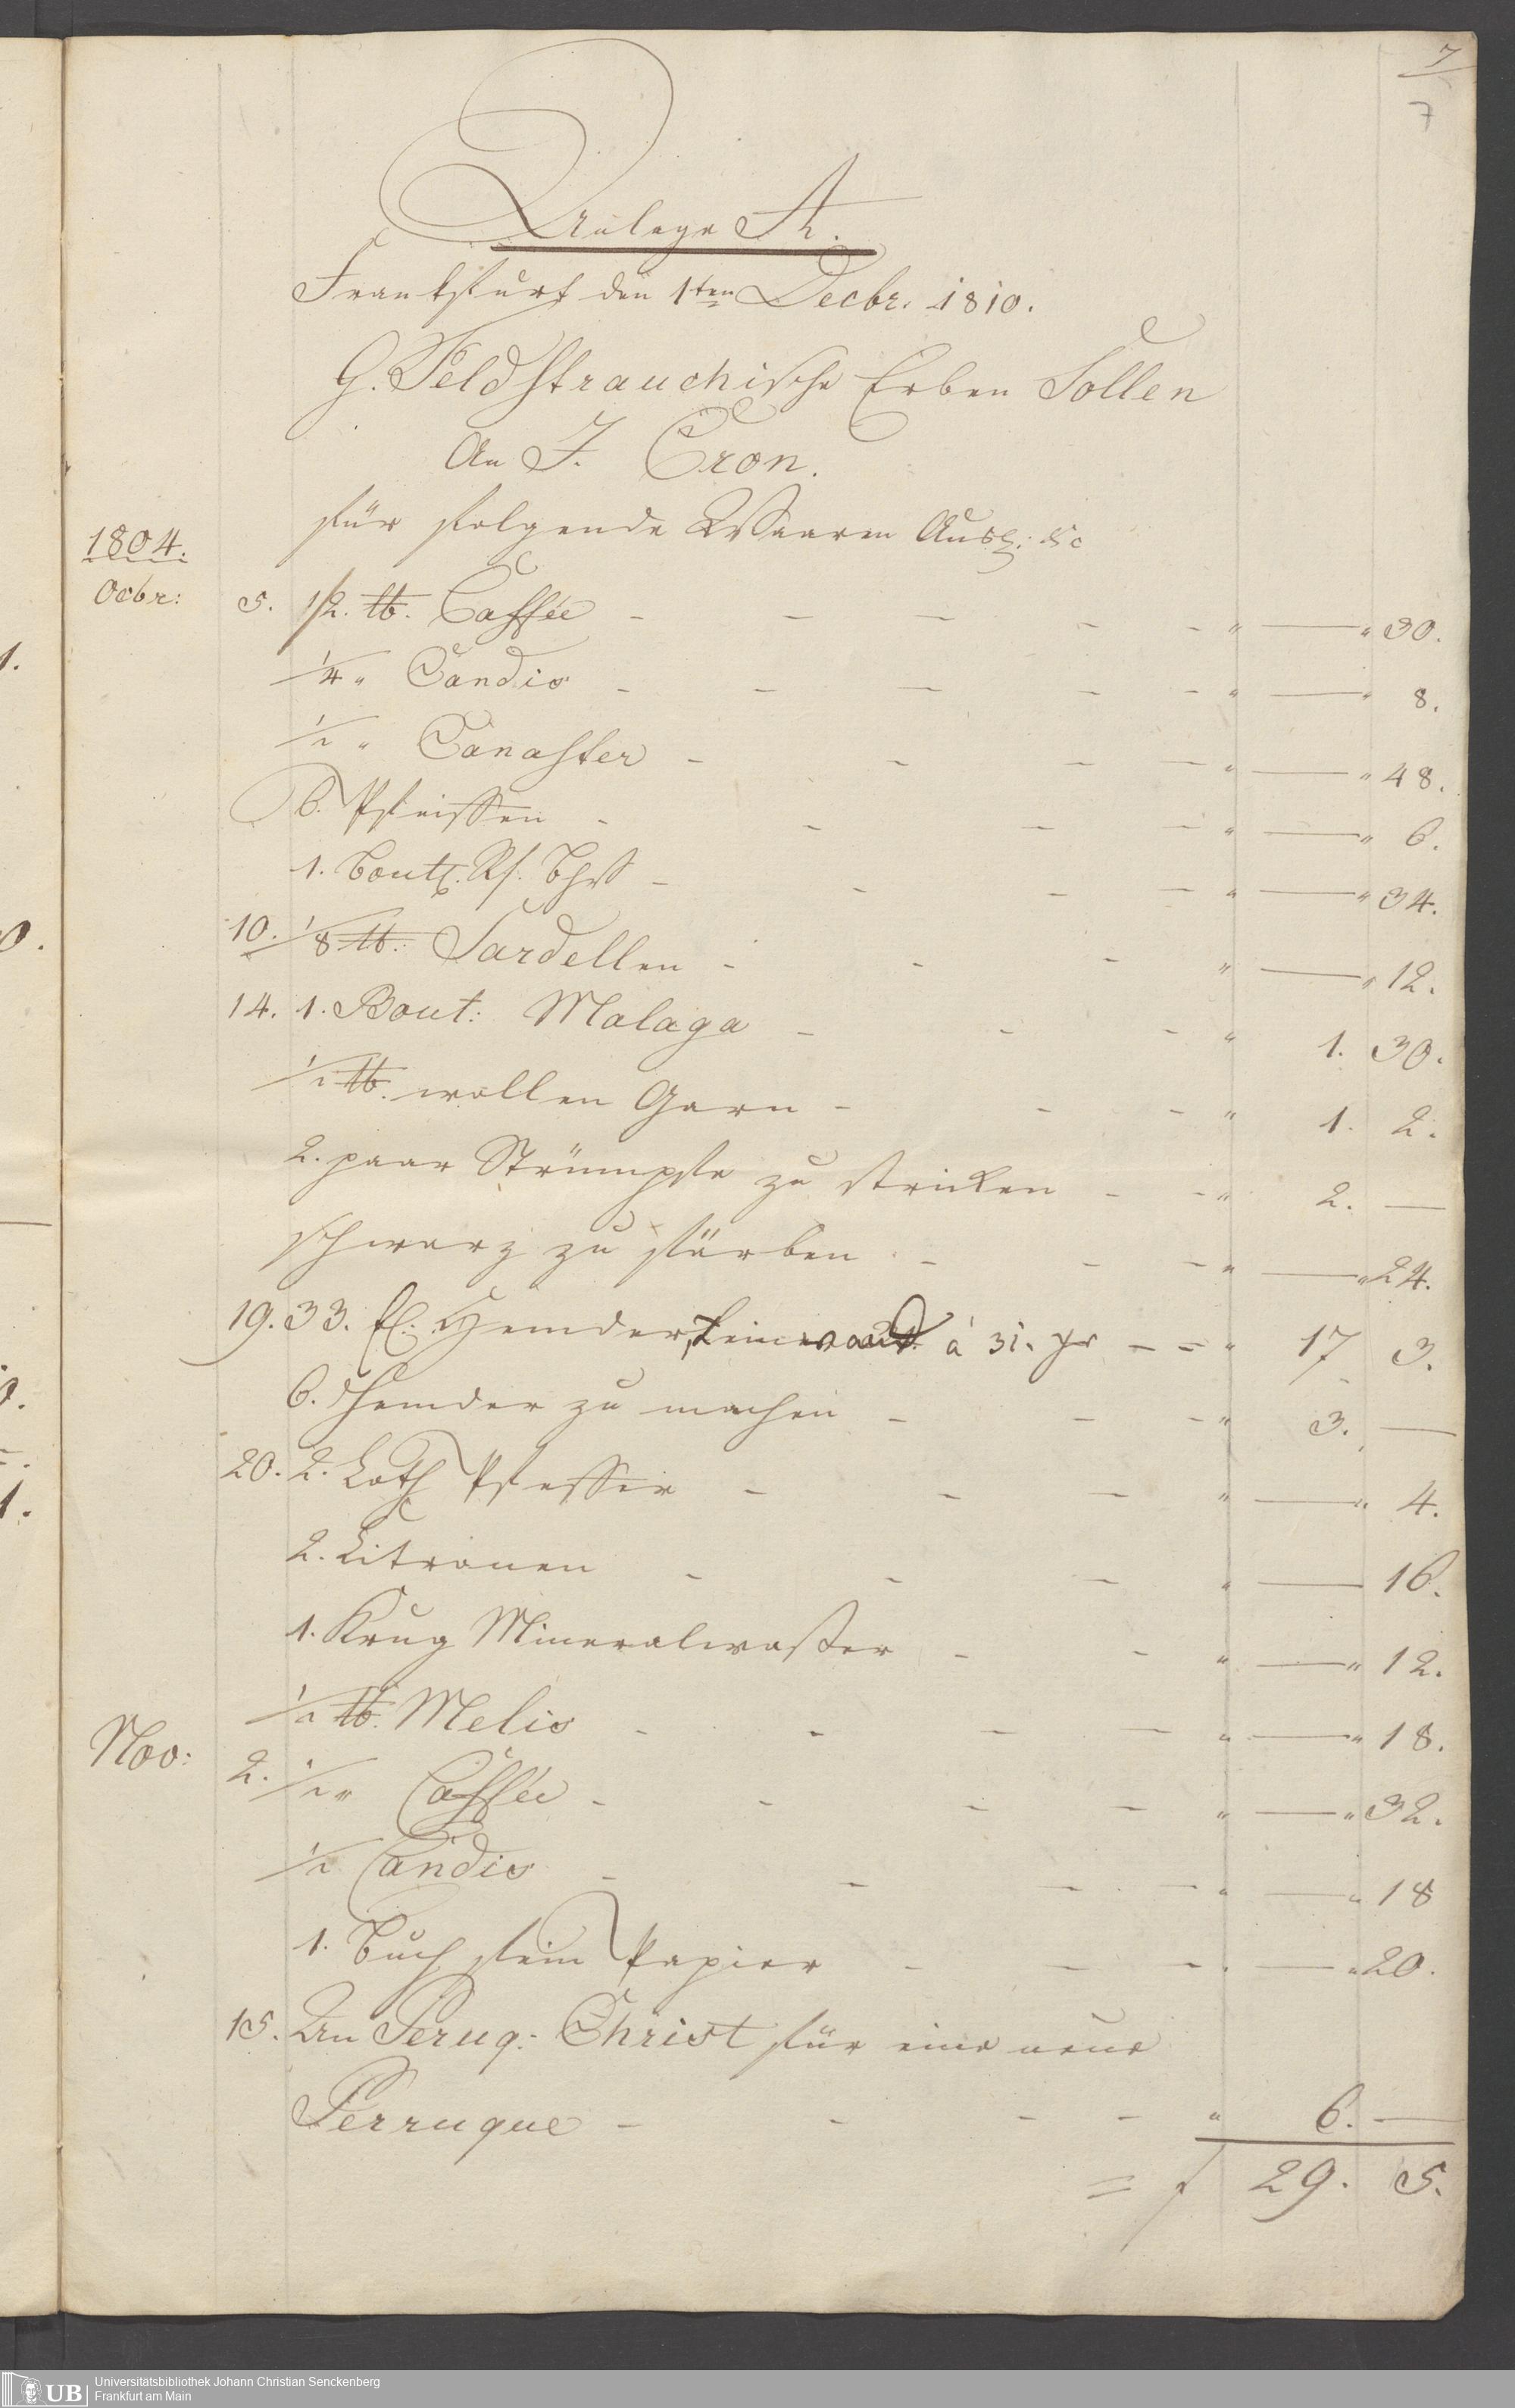 7
7
Anlage A.
Frankfurt den 1ten Decbr. 1810.
G. Feldstrauchische Erben Sollen
An J. Cron.
für folgende Waaren Ausl: &c
1804.
Ocbr: 5. 1/2. ℔. Caffée - - - - - " — " 30.
1/4 " Candis - - - - - " — " 8.
1/2 " Canaster - - - - " — " 48.
6. Pfeiffen - - - - " — " 6.
1. Boutl. - - - - " — " 34.
10. 1/8 ℔: Sardellen - - - " — " 12.
14. 1. Bout: Malaga - - - " 1. 30.
1/2 ℔. wollen Garn - - - " 1. 2.
2. paar Strümpfe zu stricken - - " 2. —
schwarz zu färben - - - " — " 24.
19. 33. El. Hemder Leinwand à 31. xr - - " 17 3.
6. Hemder zu machen - - - " 3. —
20. 2. Loth Pfeffer - - - " — " 4.
2. Citronen - - - " — 16.
1. Krug Mineralwasser - - " — " 12.
1/2 ℔. Melis - - - - " — " 18.
Nov: 2. 1/2 " Caffée - - - - " — " 32.
1/2 Candis - - - - " — " 18
1. Buch fein Papier - - - " — " 20.
15. An Peruq: Christ für eine neue
Perruque - - - - " 6. —
= f 29. 5.
UB
Universitätsbibliothek Johann Christian Senckenberg
Frankfurt am Main